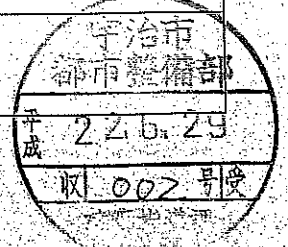 宇治市
都市整備部
平成 22.6.29
収 002 号 受